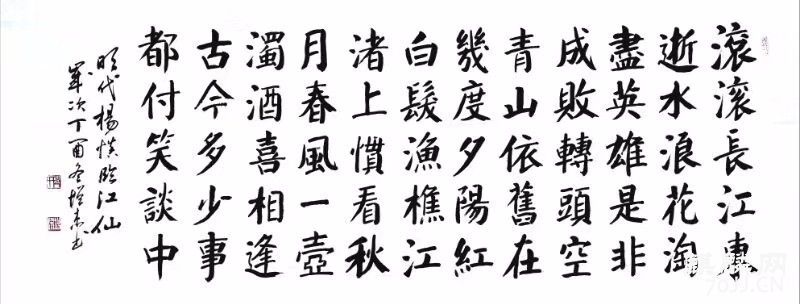 滾滾長江東
逝水浪花淘
盡英雄是非
成敗轉頭空
青山依舊在
幾度夕陽紅
白髮漁樵江
渚上慣看秋
月春風一壺
濁酒喜相逢
古今多少事
都付笑談中
明代楊慎臨江仙
歲次丁酉冬